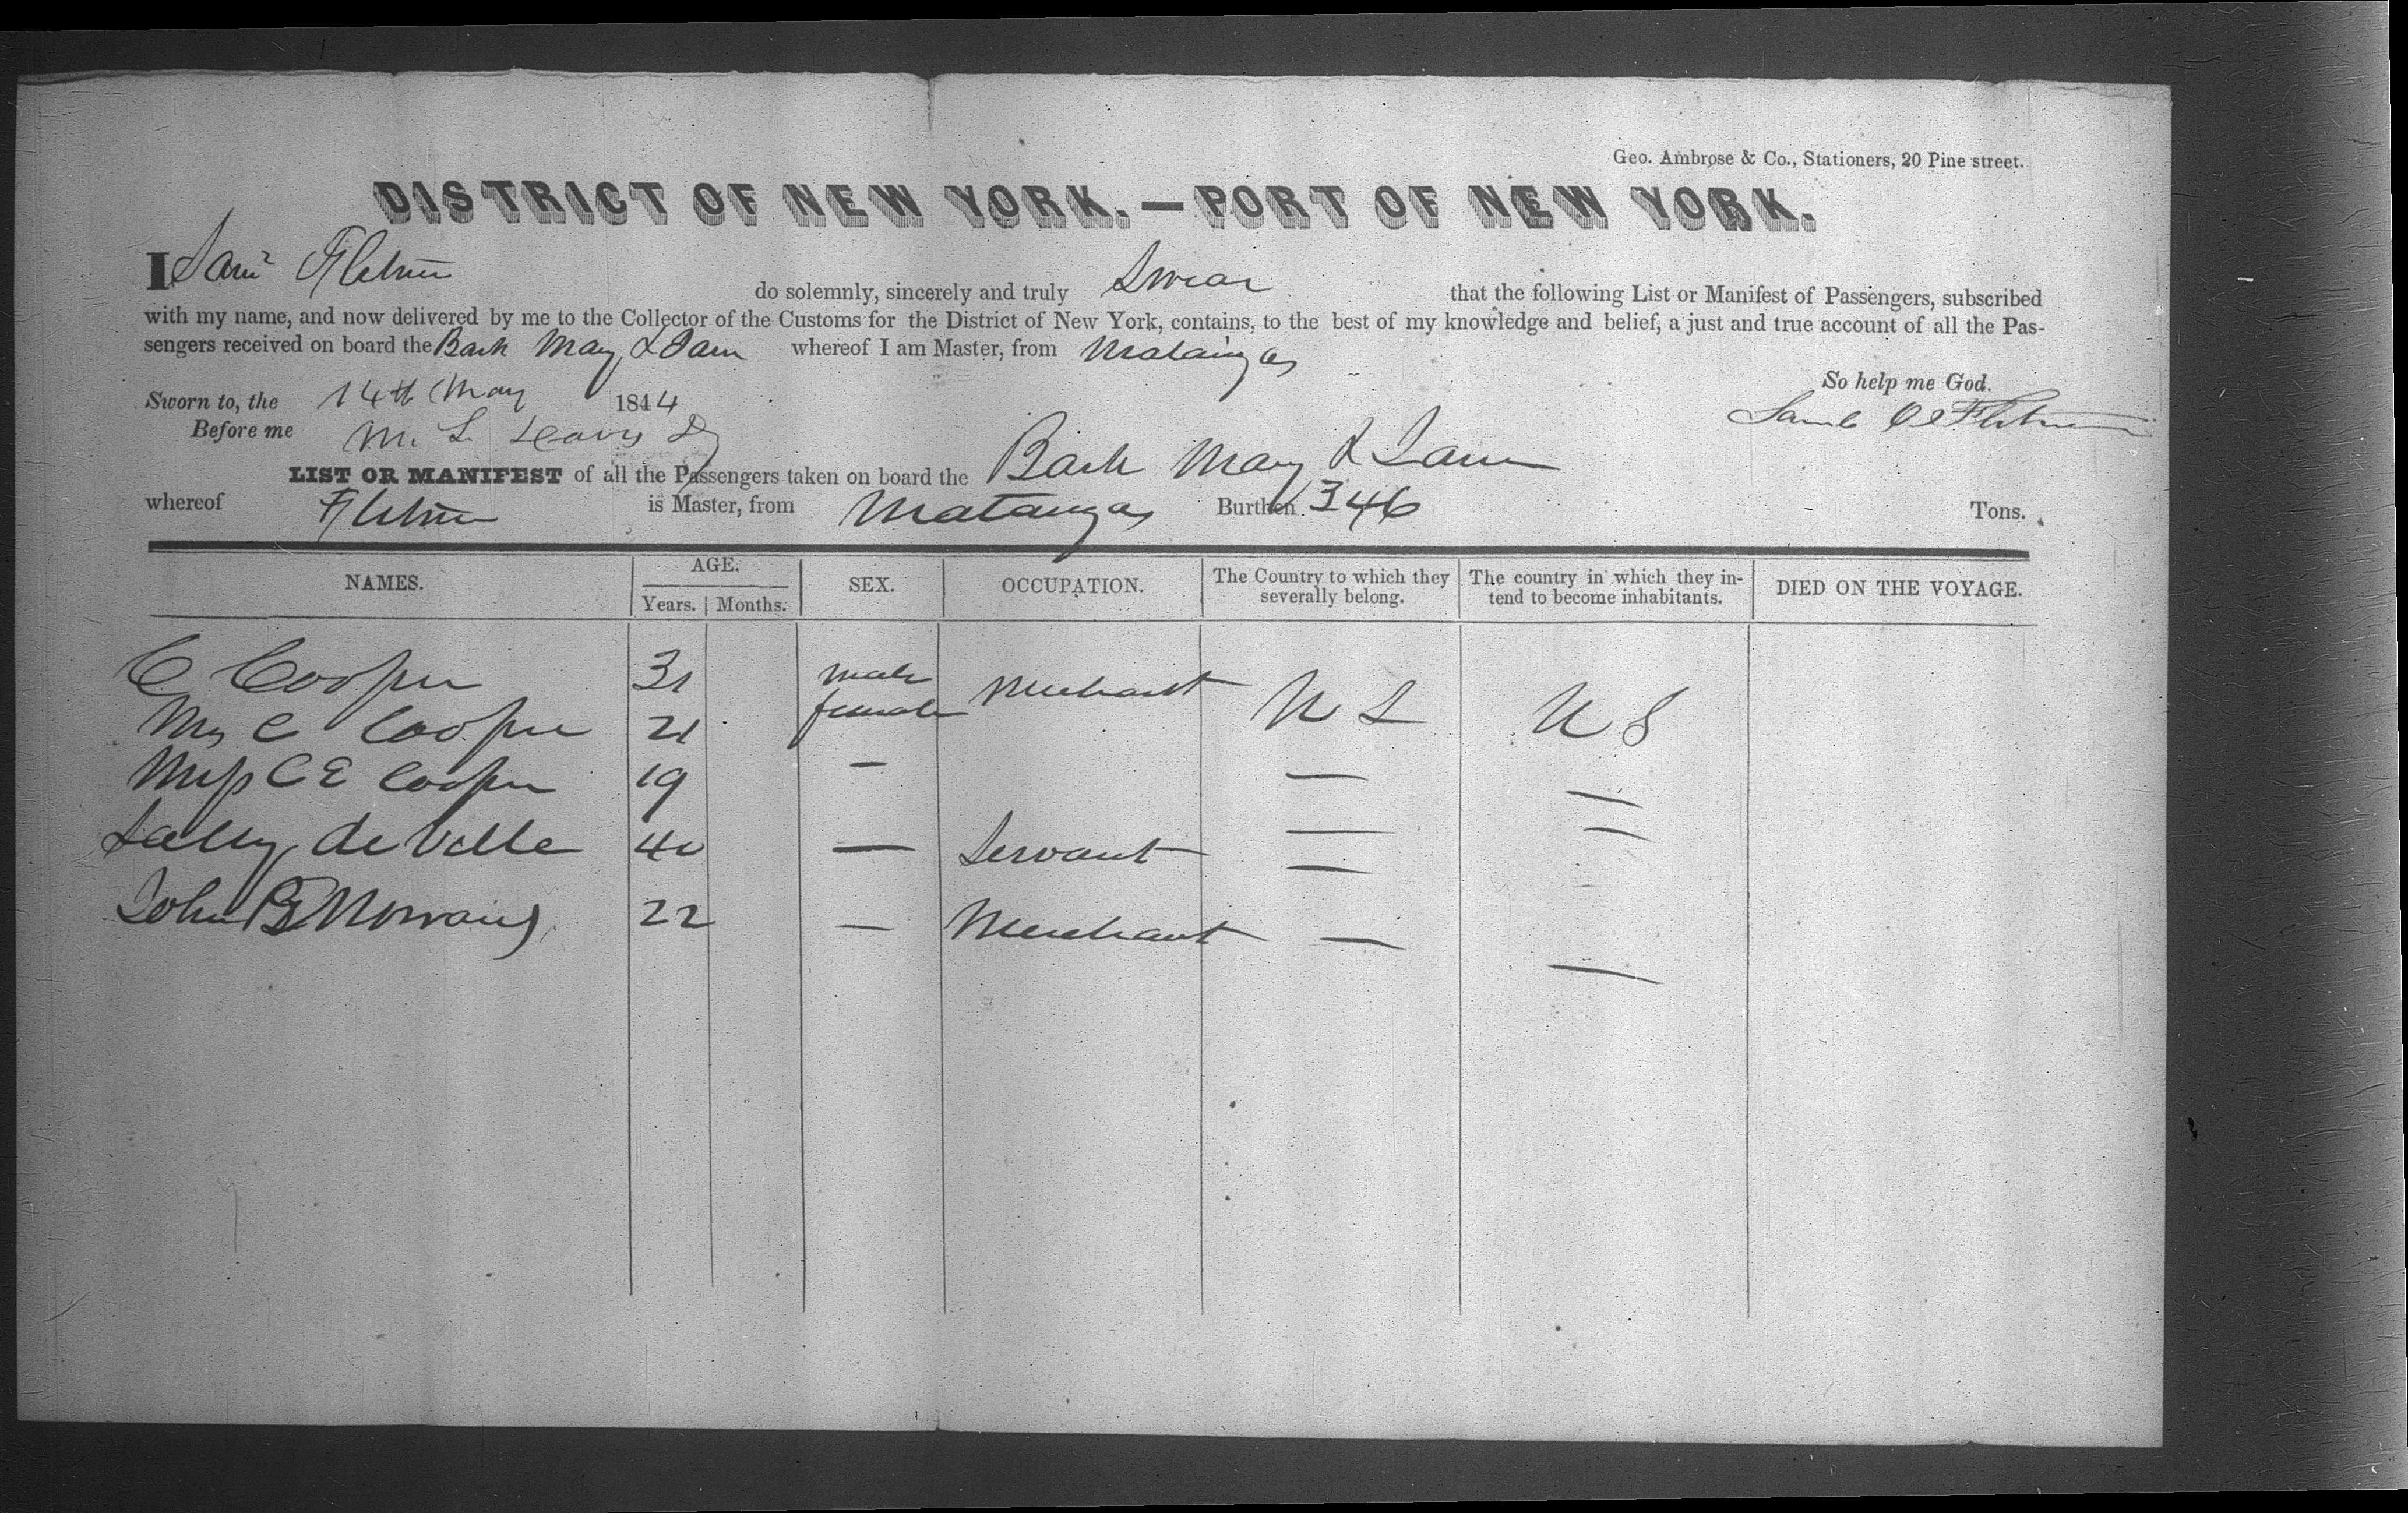 Geo. Ambrose & Co., Stationers, 20 Pine street.
DISTRICT OF NEW YORK.—PORT OF NEW YORK.
I Saml do solemnly, sincerely and truly Swear that the following List or Manifest of Passengers, subscribed
with my name, and now delivered by me to the Collector of the Customs for the District of New York, contains, to the best of my knowledge and belief, a just and true account of all the Pas-
sengers received on board the Bark Mary & Jane whereof I am Master, from Matanzas
So help me God.
Sworn to, the 14th May 1844
Before me M. L.
LIST OR MANIFEST of all the Passengers taken on board the Bark Mary & Jane
whereof is Master, from Matanzas Burthen 346 Tons.
NAMES. AGE. SEX. OCCUPATION. The Country to which they severally belong. The country in which they in- tend to become inhabitants. DIED ON THE VOYAGE.
Years. Months.
C Cooper 31 male Merchant U S U S
Mrs C Cooper 21 female
Miss C E Cooper 19 — — —
Sally de Ville 40 — Servant — — —
John B 22 — Merchant — —